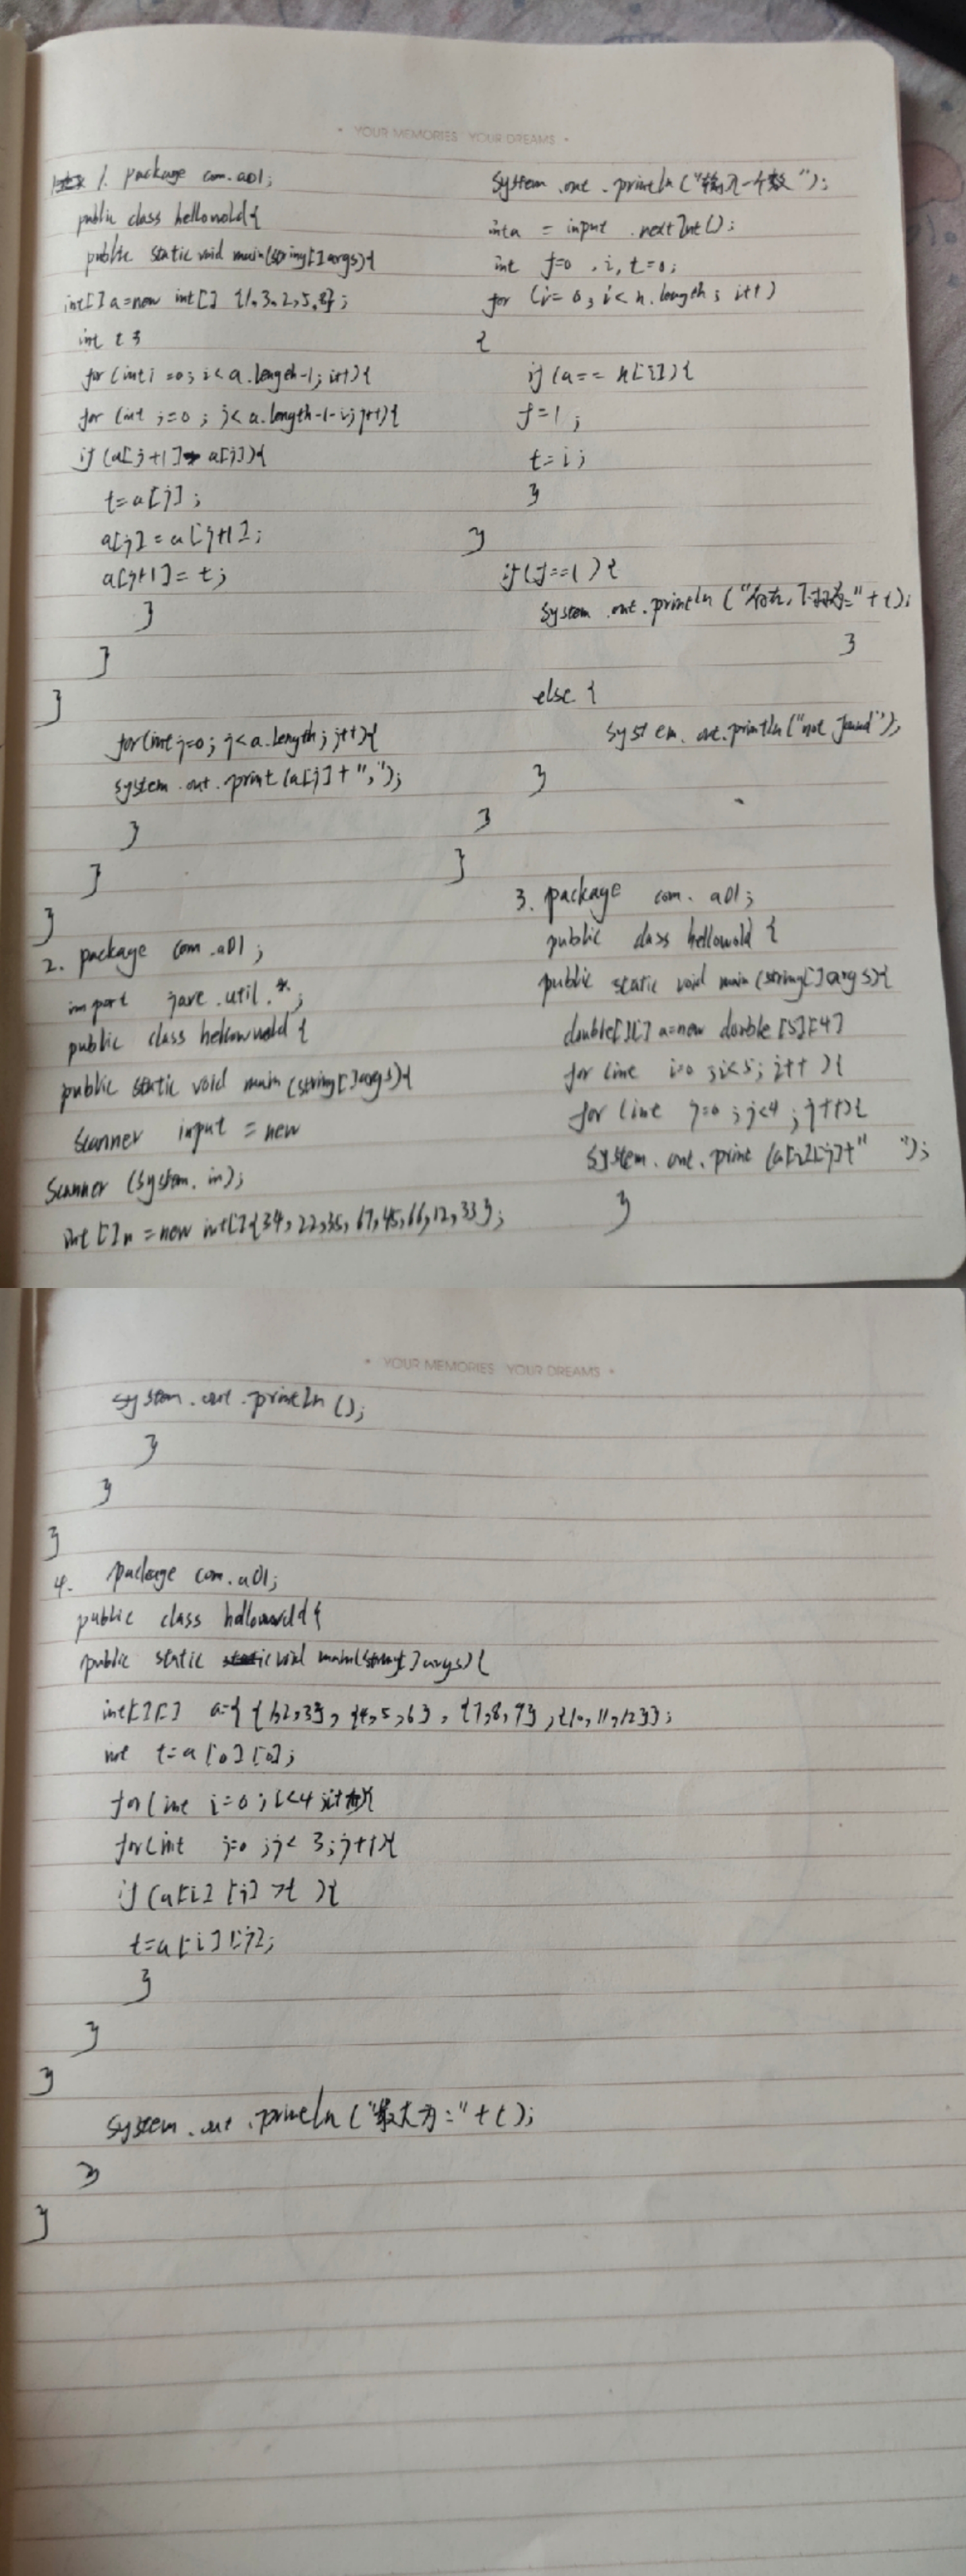 • YOUR MEMORIES YOUR DREAMS •
1. package com.a01;
public class hellowold{
public static void main(string[]args){
int[]a=new int[] {1.3.2,5,8};
int t;
for(int i=0; i<a.length-1; i++){
for(int j=0; j<a.length-1-i; j++){
if(a[j+1] a[j]){
t=a[j];
a[j]=a[j+1];
a[j+1]=t;
}
}
}
for(int j=0; j<a.length; j++){
system.out.print(a[j]+",");
}
}
}
2. package com.a01;
import jave.util.*;
public class {
public static void main(string[]args){
Scanner input = new
Scanner (System.in);
int []n =new int[]{34,22,35,67,45,66,12,33};
System.out.println("输入一个数");
int a = input .nextInt();
int f=0 ,i,t=0;
for (i=0; i<n.length; i++)
{
if(a==n[i]){
f=1;
t=i;
}
}
if(f==1){
System.out.println(" "+t);
}
else {
System.out.println("not found");
}
}
}
3. package com.a01;
public class hellowold {
public static void main(string[]args){
double[][] a=new double[5][4]
for(int i=0;i<5;i++){
for(int j=0;j<4;j++){
System.out.print(a[i][j]+" ");
}
• YOUR MEMORIES YOUR DREAMS •
system.out.println();
}
}
}
4. package com.a01;
public class {
public static void main(string[]args){
int[][] a={{1,2,3},{4,5,6},{7,8,9},{10,11,12}};
int t=a[0][0];
for(int i=0;i<4;i++){
for(int j=0;j<3;j++){
if(a[i][j]>t){
t=a[i][j];
}
}
}
System.out.println("最大为:"+t);
}
}